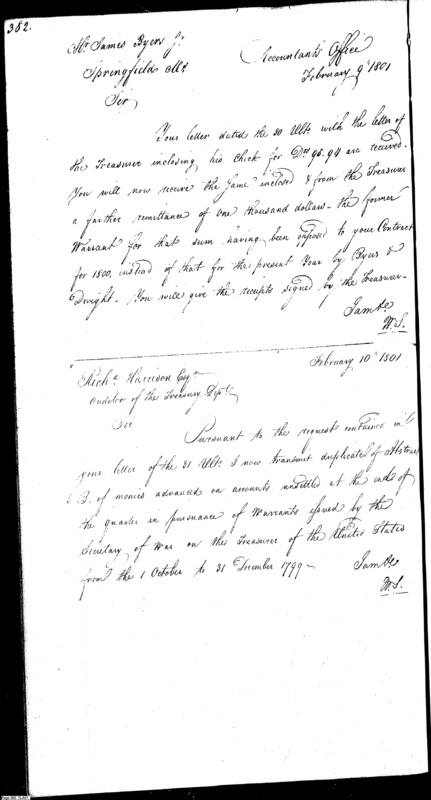 382.
Mr. James Byers Jr.
Springfield Ms.
Sir
Accountants Office
February 9th 1801
Your letter dated the 30 Ulto with the letter of
the Treasurer inclosing his Check for Drs 95.94 are received.
You will now receive the same inclosed & from the Treasurer
a farther remittance of one thousand dollars - the former
Warrant for that sum having been opposed to your Contract
for 1800, instead of that for the present Year by Byers &
Dwight. You will give the receipts signed by the Treasurer.
I am &c
W.S.
February 10th 1801
Richd Harrison Esqr
auditor of the Treasury Dept.
Sir
Pursuant to the request contained in
your letter of the 31 Ulto I now transmit duplicate of Abstract
B. of monies advanced on accounts unsettled at the end of
the quarter in pursuance of Warrants issued by the
Secretary of War on the Treasurer of the United States
from the 1 October to 31 December 1799 -
I am &c
W.S.